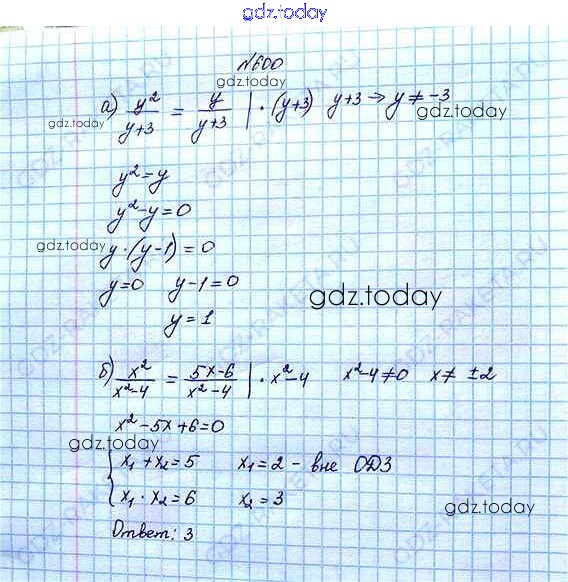 gdz.today
№600
gdz.today
а) y²/(y+3) = y/(y+3) | · (y+3) y+3 → y ≠ -3
gdz.today
gdz.today
y² = y
y² - y = 0
gdz.today
y · (y - 1) = 0
y = 0 y - 1 = 0
gdz.today
y = 1
б) x²/(x²-4) = (5x-6)/(x²-4) | · x²-4 x²-4 ≠ 0 x ≠ ±2
x² - 5x + 6 = 0
gdz.today
{ x₁ + x₂ = 5 x₁ = 2 - вне ОДЗ
x₁ · x₂ = 6 x₂ = 3
gdz.today
Ответ: 3
GDZ-RAKETA.RU